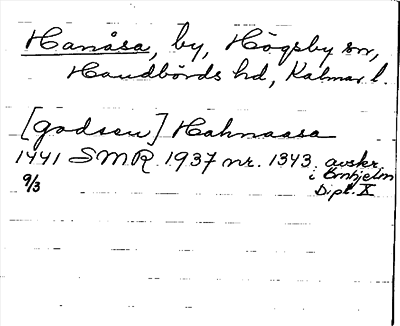 Hanåsa, by, Högsby sn,
Handbörds hd, Kalmar l.
[godsen] Hahnaasa
1441 SMR 1937 nr. 1343 avskr.
9/3 i Örnhjelm
Dipl. X